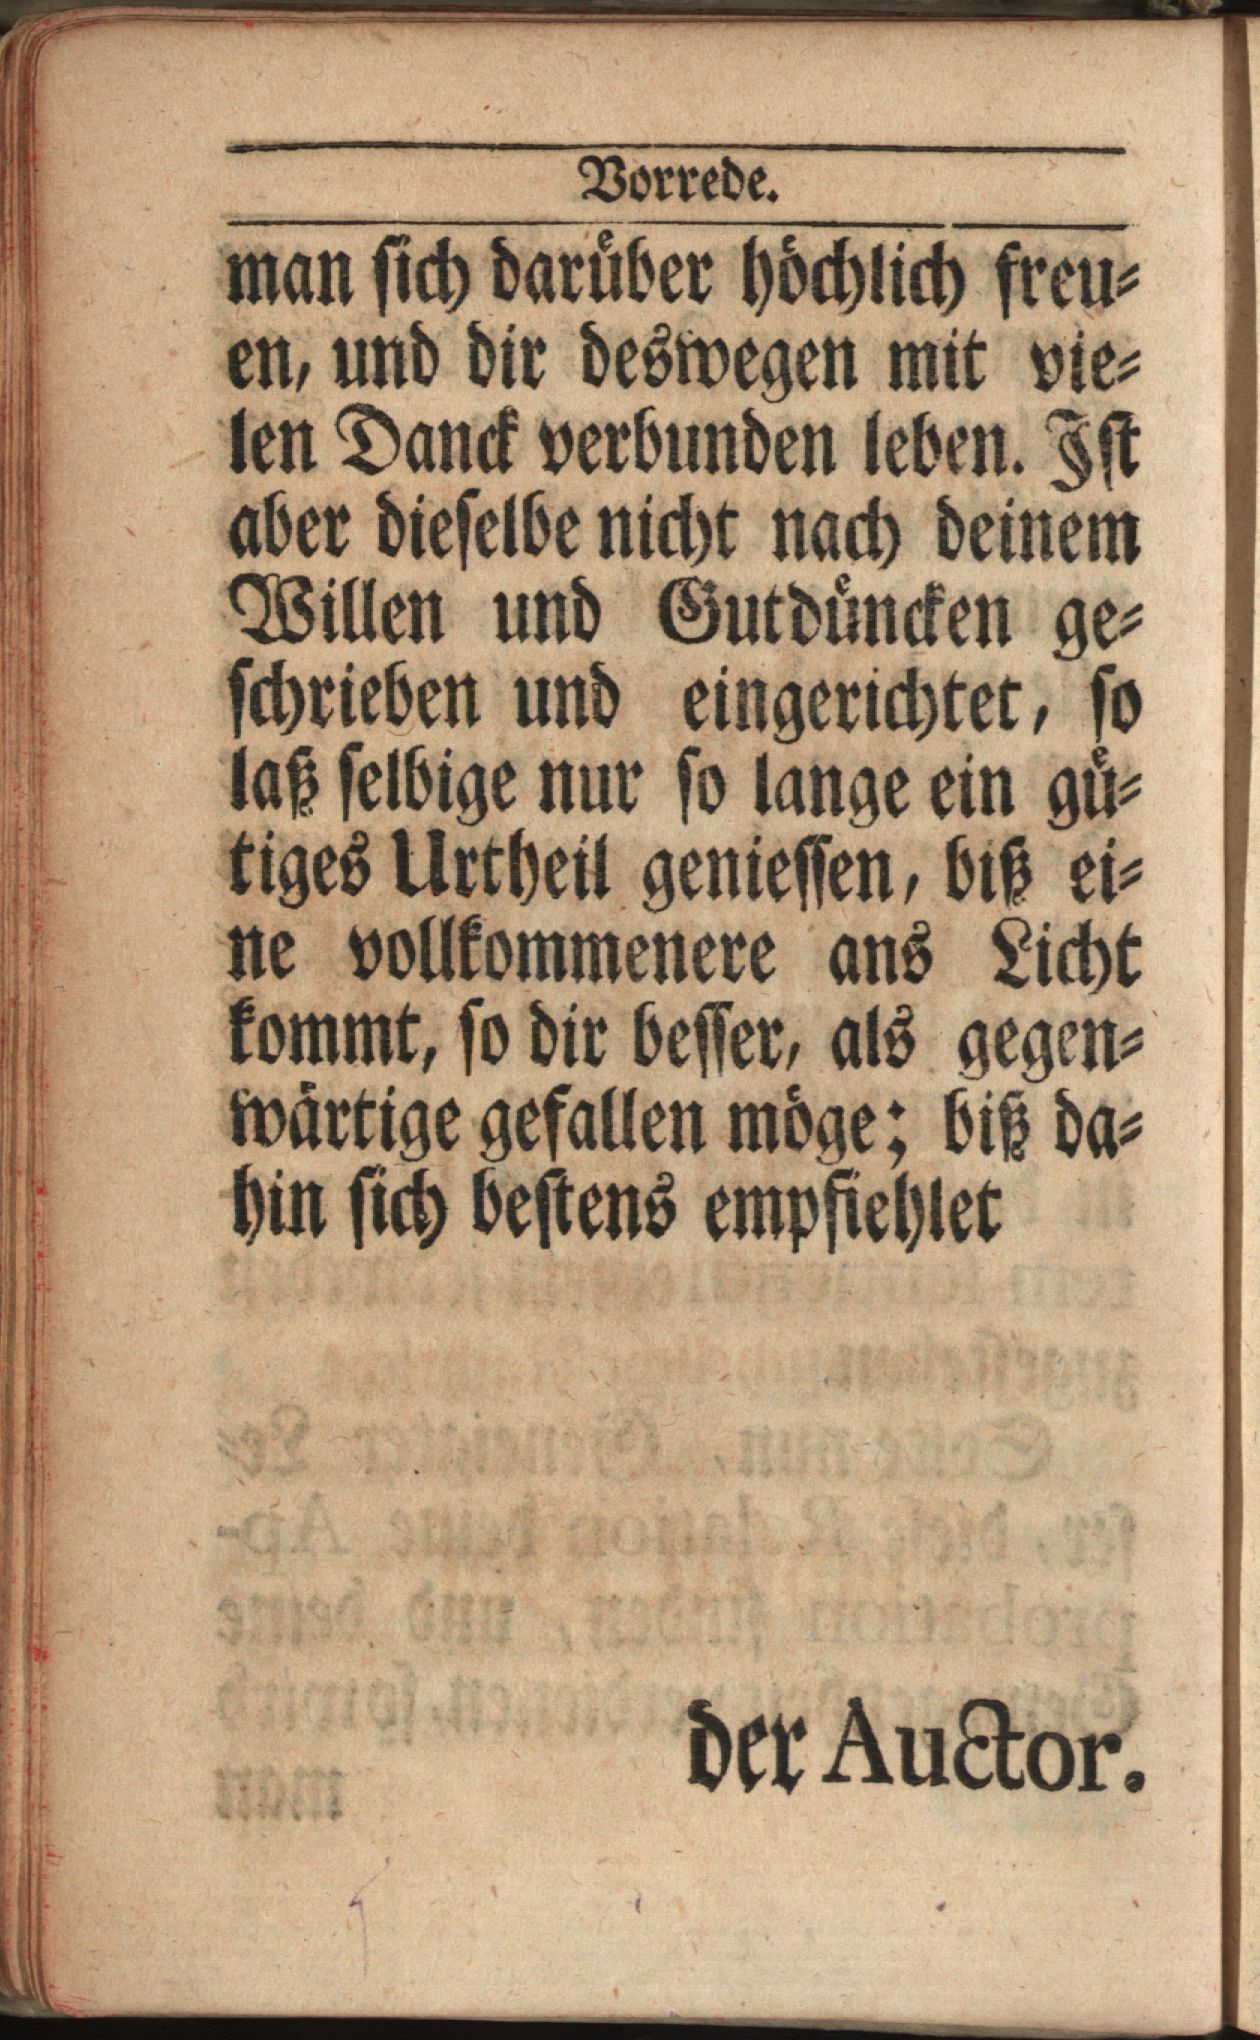 Vorrede.
man ſich daruͤber hoͤchlich freu⸗
en, und dir deswegen mit vie⸗
len Danck verbunden leben. Iſt
aber dieſelbe nicht nach deinem
Willen und Gutduͤncken ge⸗
ſchrieben und eingerichtet, ſo
laß ſelbige nur ſo lange ein guͤ⸗
tiges Urtheil genieſſen, biß ei⸗
ne vollkommenere ans Licht
kommt, ſo dir beſſer, als gegen⸗
waͤrtige gefallen moͤge; biß da⸗
hin ſich beſtens empfiehlet
der Auctor.